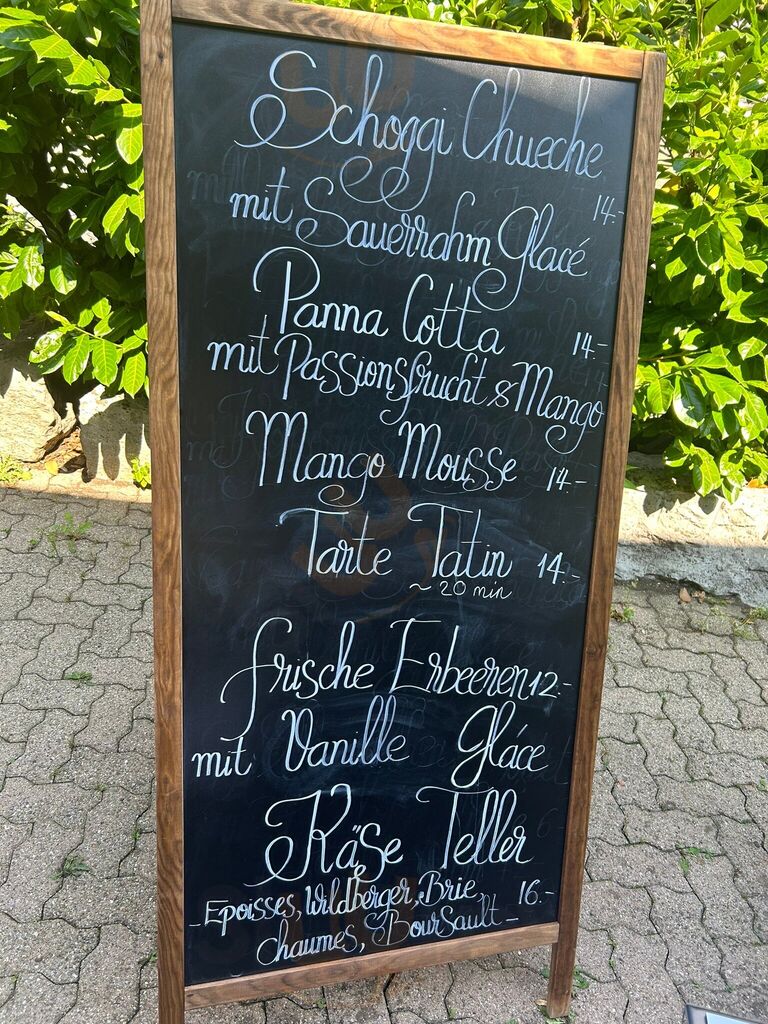 Schoggi Chueche
14.-
mit Sauerrahm Glacé
Panna Cotta 14.-
mit Passionsfrucht & Mango
Mango Mousse 14.-
Tarte Tatin 14.-
~ 20 min
frische Erbeeren 12.-
mit Vanille Gláce
Käse Teller
- Epoisses, Wildberger, Brie, 16.-
chaumes, Boursault -